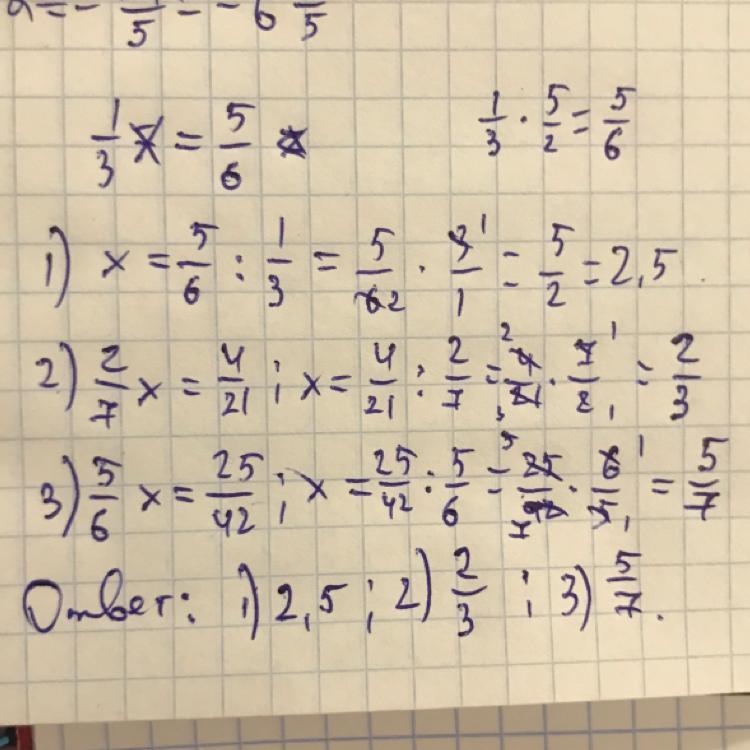 5 = - 6 5
1/3 x = 5/6 1/3 · 5/2 = 5/6
1) x = 5/6 : 1/3 = 5/62 · 3 1/1 = 5/2 = 2,5
2) 2/7 x = 4/21 ; x = 4/21 : 2/7 = 2 4/3 21 · 7 1/2 1 = 2/3
3) 5/6 x = 25/42 ; x = 25/42 : 5/6 = 5 25/7 42 · 6 1/5 1 = 5/7
Ответ: 1) 2,5 ; 2) 2/3 ; 3) 5/7.